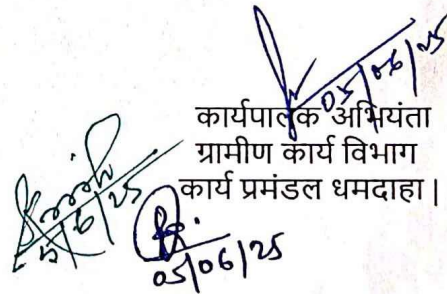 05/06/25
कार्यपालक अभियंता
ग्रामीण कार्य विभाग
कार्य प्रमंडल धमदाहा।
5/6/25
05/06/25